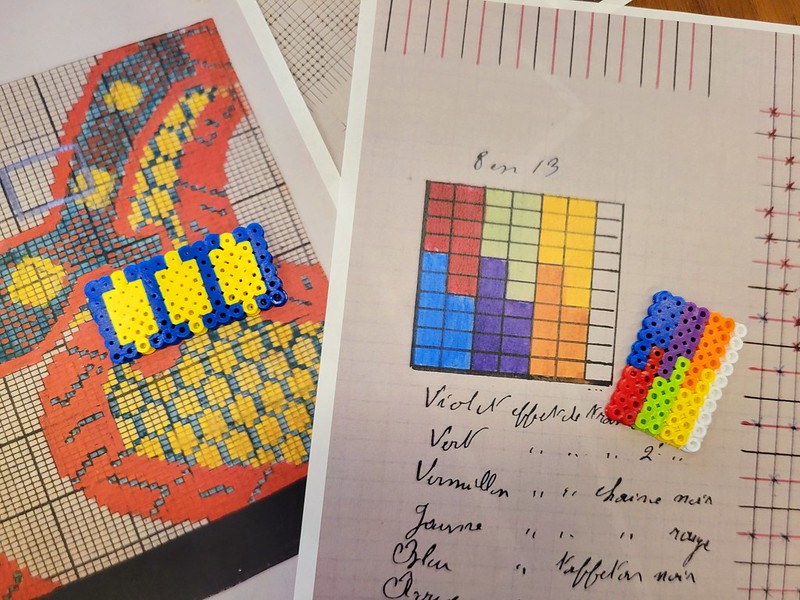 8 en 13
Violet effet de
Vert " " " 2e "
Vermillon " " chaine noir
Jaune " " " rouge
Bleu " taffetas noir